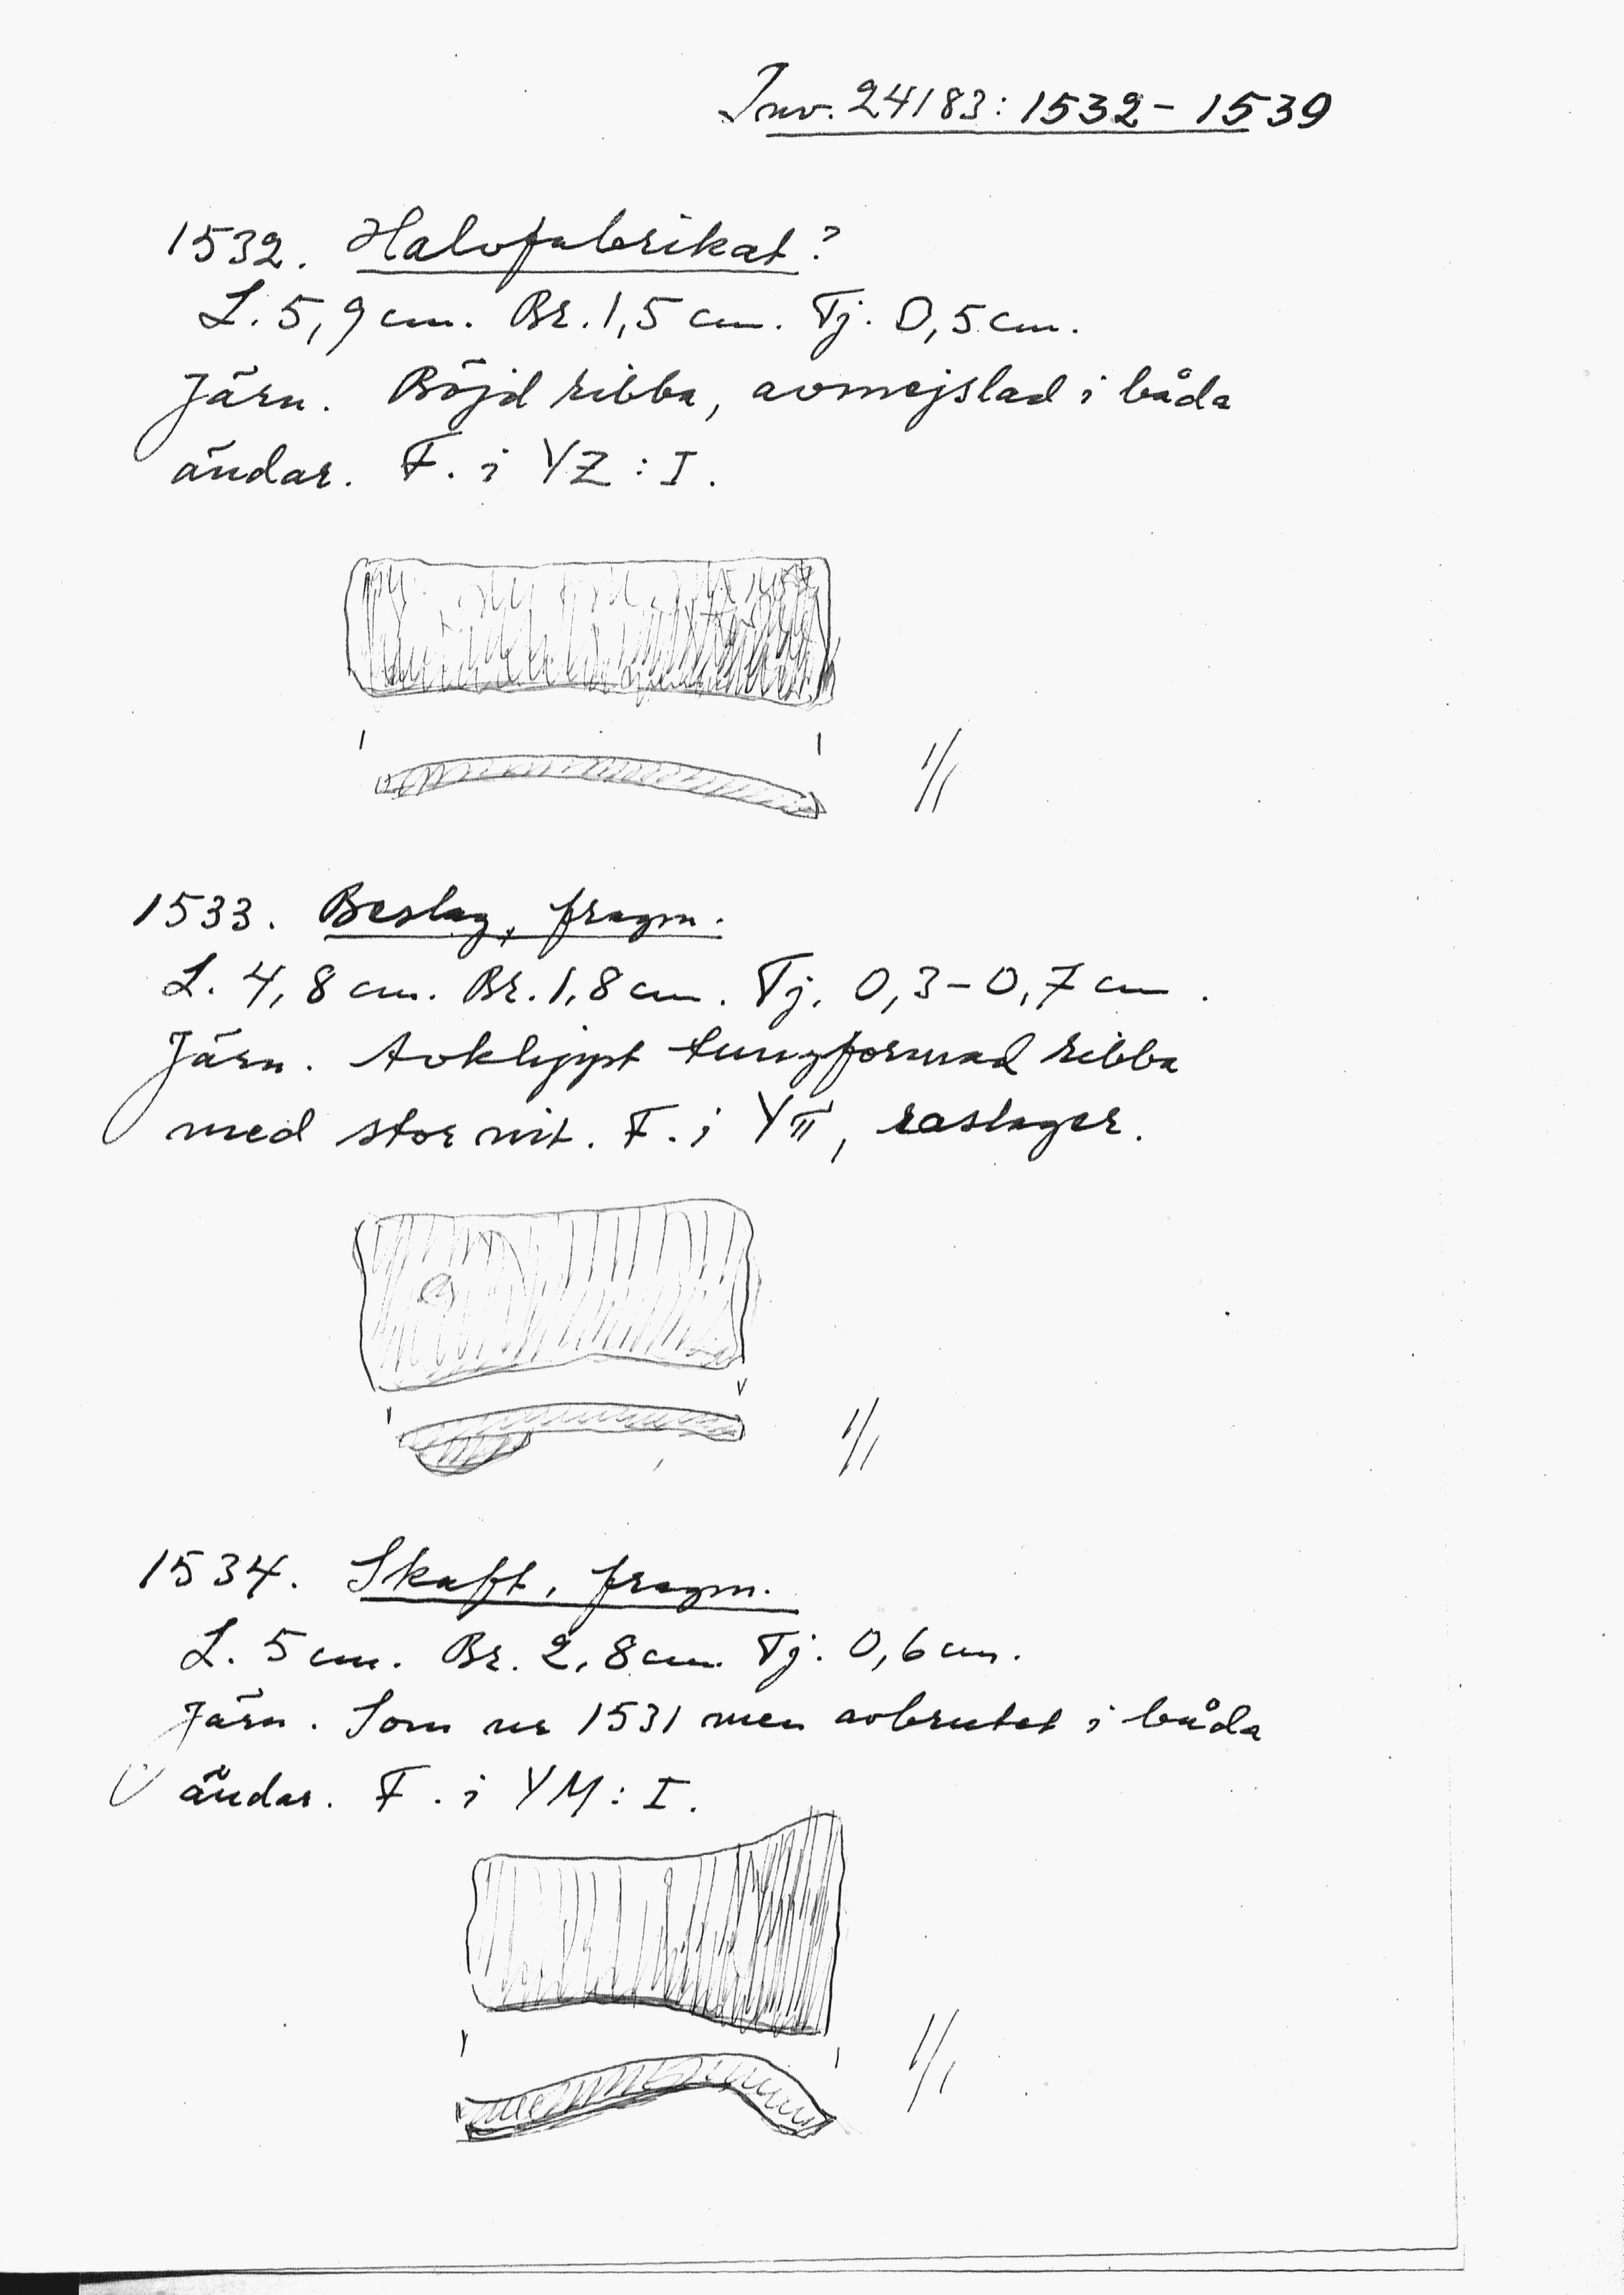 Inv. 24183: 1532-1539
1532. Halvfabrikat?
L. 5,9 cm. Br. 1,5 cm. Tj. 0,5 cm.
Järn. Böjd ribba, avmejslad i båda
ändar. F. i YZ : I.
1/1
1533. Beslag, fragm.
L. 4,8 cm. Br. 1,8 cm. Tj. 0,3-0,7 cm.
Järn. Avklippt tungformad ribba
med stor nit. F. i YII, raslager.
1/1
1534. Skaft, fragm.
L. 5 cm. Br. 2,8 cm Tj. 0,6 cm.
Järn. Som nr 1531 men avbrutet i båda
ändar. F. i YM: I.
1/1